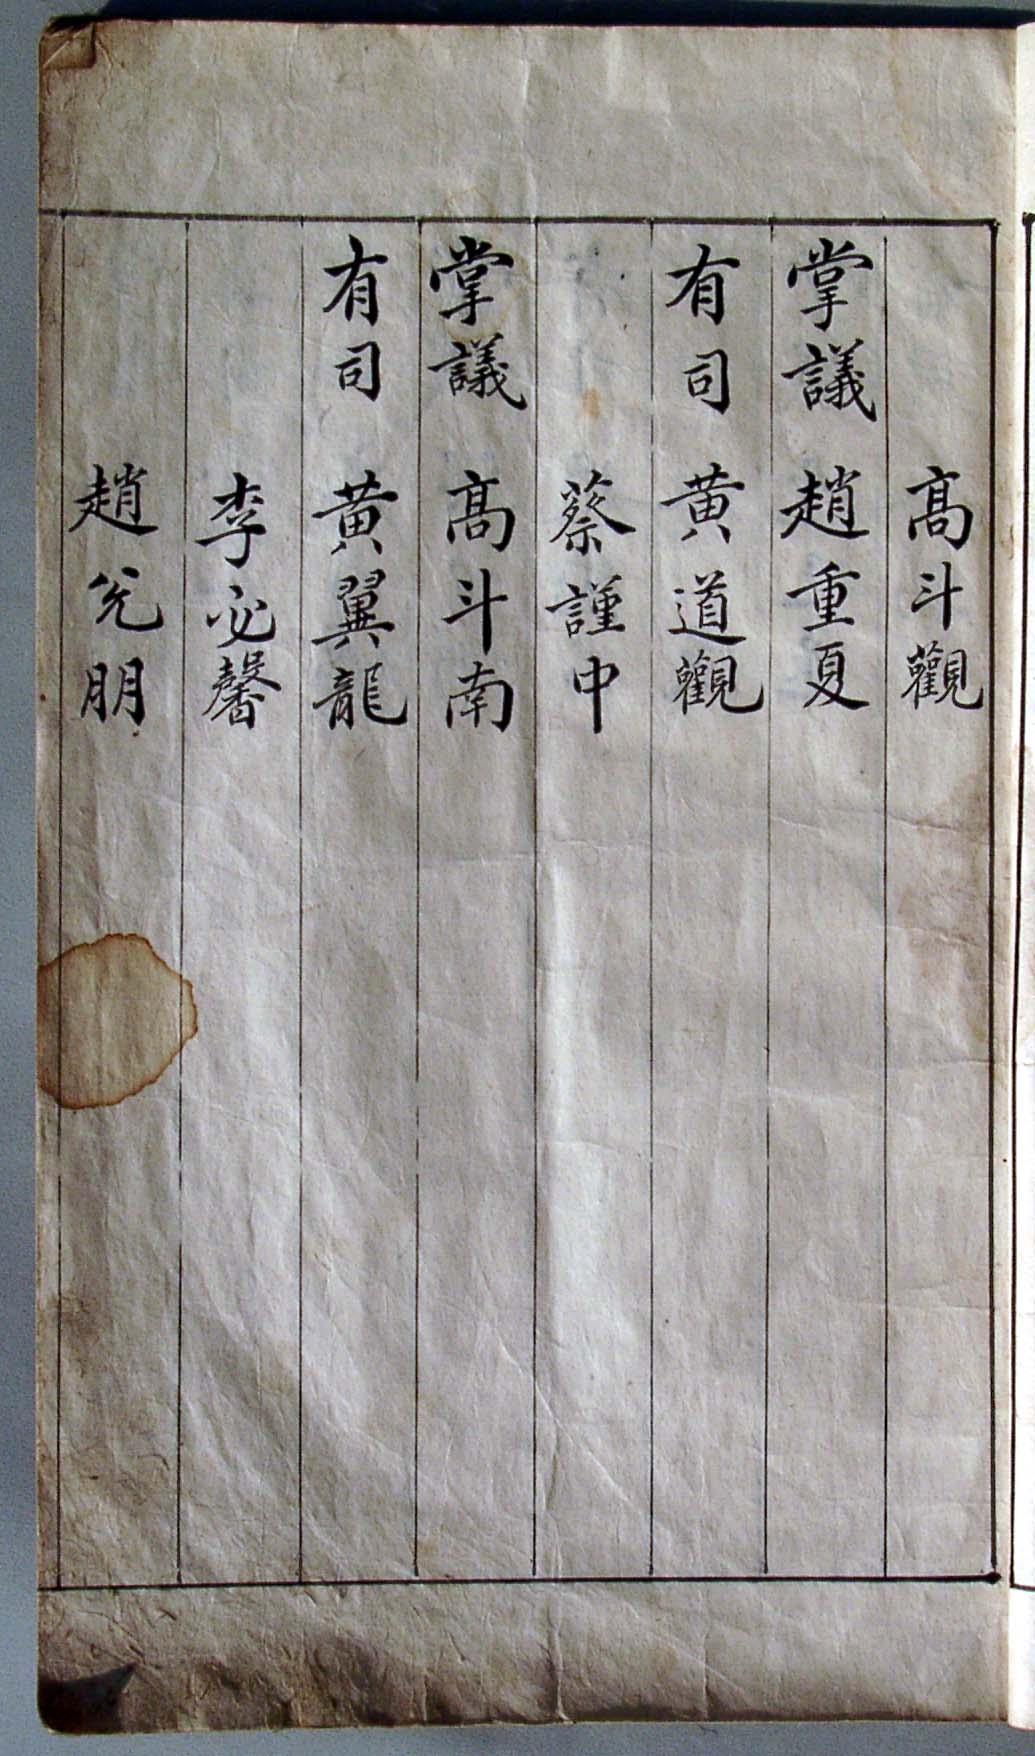 高斗觀
掌議 趙重夏
有司 黃道觀
蔡謹中
掌議 高斗南
有司 黃翼龍
李必馨
趙兊朋